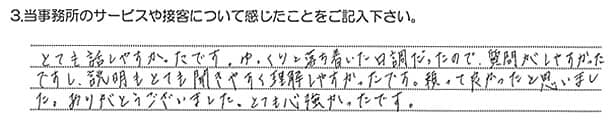 3.当事務所のサービスや接客について感じたことをご記入下さい。
とても話しやすかったです。ゆっくりと落ち着いた口調だったので、質問がしやすかった
ですし、説明もとても聞きやすく理解しやすかったです。頼って良かったと思いまし
た。ありがとうございました。とても心強かったです。